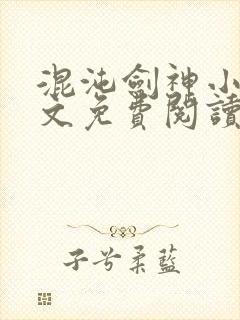 混沌劍神小
文免費閱讀
子兮柔藍